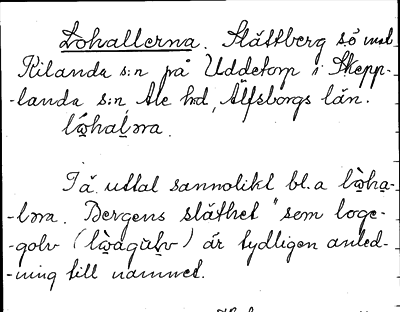 Lohallerna. Slättberg sö mot
Kilanda s:n på Uddetorp i Skepp-
-landa s:n Ale hd, Älfsborgs län.
lω̂haləra.
I ä. uttal sannolikt bl.a lω̂ha-
-ləra. Bergens släthet "sem loge-
-golv (lω̂agùlv) är tydligen anled-
-ning till namnet.